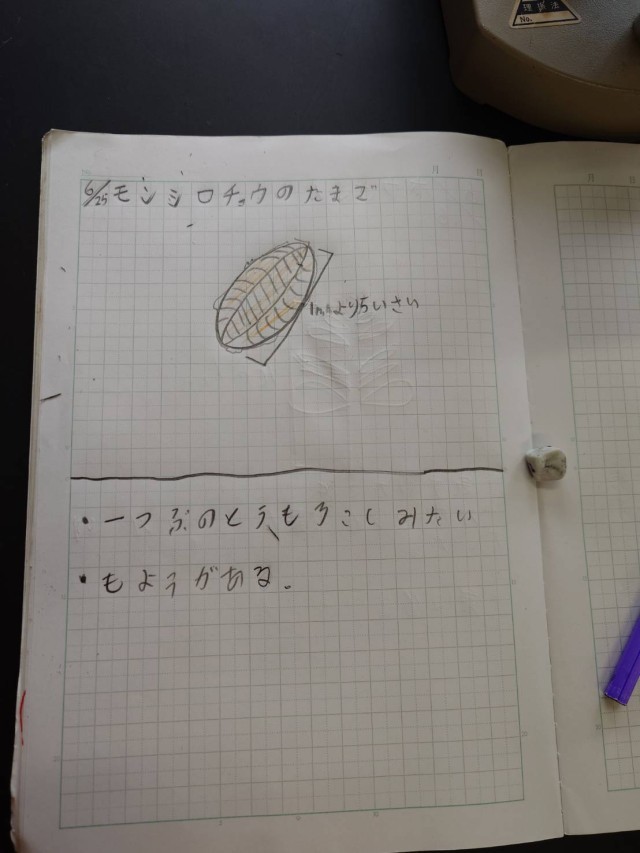 理振法
No.
6/25 モンシロチョウのたまご
1mmよりちいさい
・一つぶのとうもろこしみたい
・もようがある。